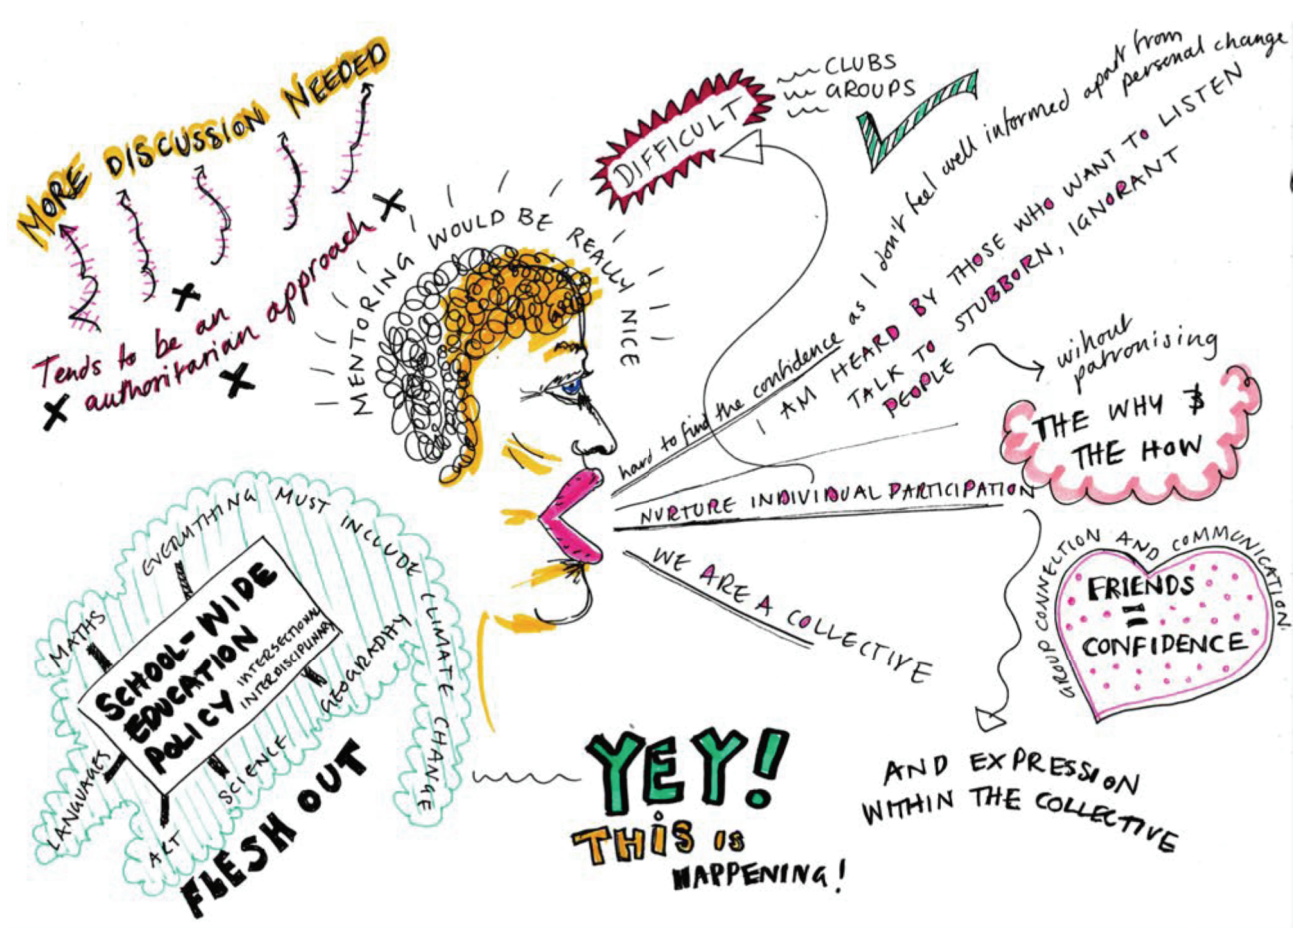 MORE DISCUSSION NEEDED
Tends to be an
authoritarian approach
MENTORING WOULD BE REALLY NICE
DIFFICULT
CLUBS
GROUPS
hard to find the confidence as I don't feel well informed apart from
personal change
I AM HEARD BY THOSE WHO WANT TO LISTEN
TALK TO STUBBORN, IGNORANT
PEOPLE
wihout
patronising
THE WHY &
THE HOW
NURTURE INDIVIDUAL PARTICIPATION
WE ARE A COLLECTIVE
GROUP CONNECTION AND COMMUNICATION
FRIENDS
=
CONFIDENCE
AND EXPRESSION
WITHIN THE COLLECTIVE
EVERYTHING MUST INCLUDE CLIMATE CHANGE
MATHS
SCHOOL-WIDE
EDUCATION
POLICY
INTERSECTIONAL
INTERDISCIPLINARY
GEOGRAPHY
SCIENCE
LANGUAGES
ART
FLESH OUT
YEY!
THIS IS
HAPPENING!